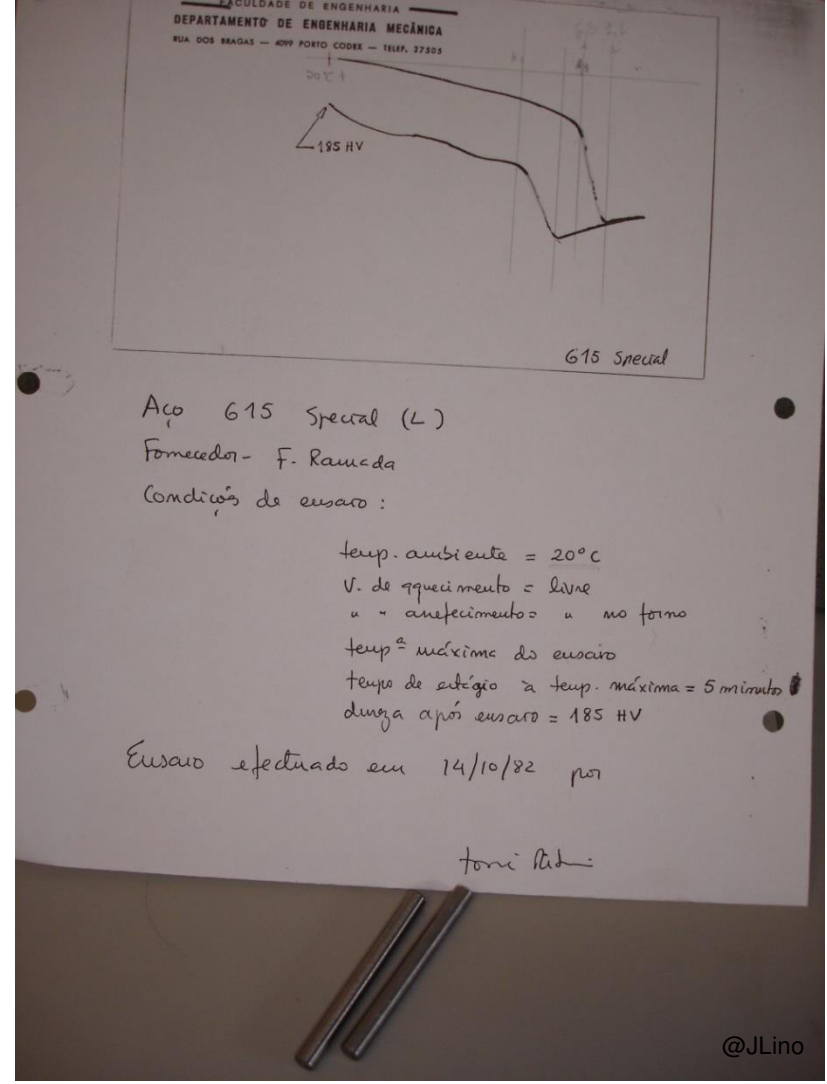 FACULDADE DE ENGENHARIA
DEPARTAMENTO DE ENGENHARIA MECÂNICA
RUA DOS BRAGAS — 4099 PORTO CODEX — TELEF. 27505
20°C
185 HV
615 Special
Aço 615 Special (L)
Fornecedor - F. Ramada
Condições de ensaio :
temp. ambiente = 20°C
V. de aquecimento = livre
" " arrefecimento = " no forno
tempª máxima do ensaio
tempo de estágio à temp. máxima = 5 minutos
dureza após ensaio = 185 HV
Ensaio efectuado em 14/10/82 por
@JLino